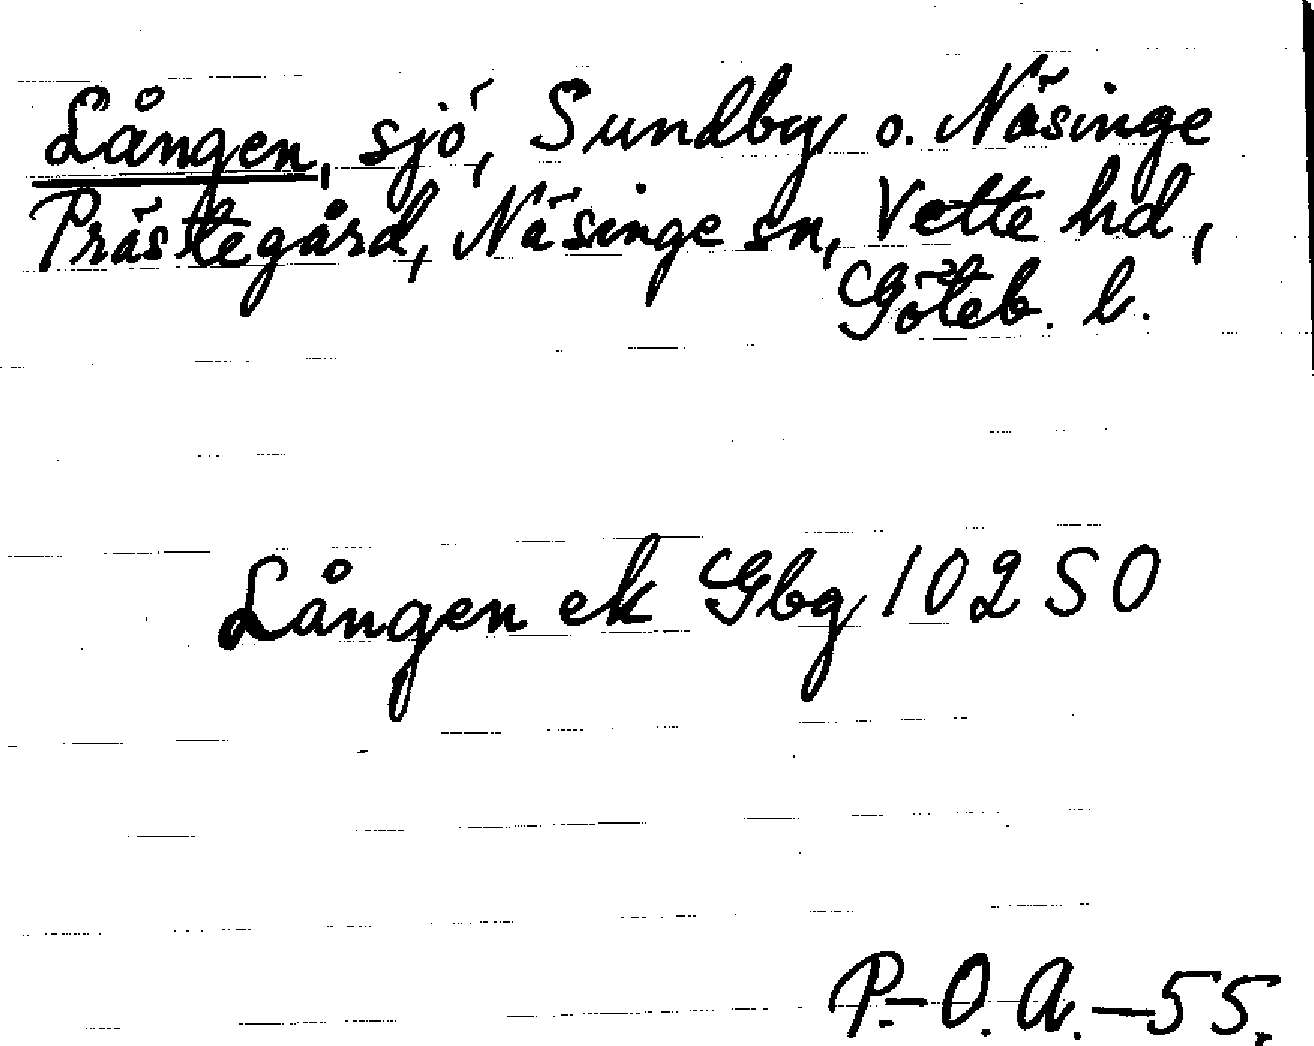 Lången, sjö, Sundby o. Näsinge
Prästegård, Näsinge sn, Vette hd,
Göteb. l.
Lången ek Gbg 10250
P.-O. A. - 55.